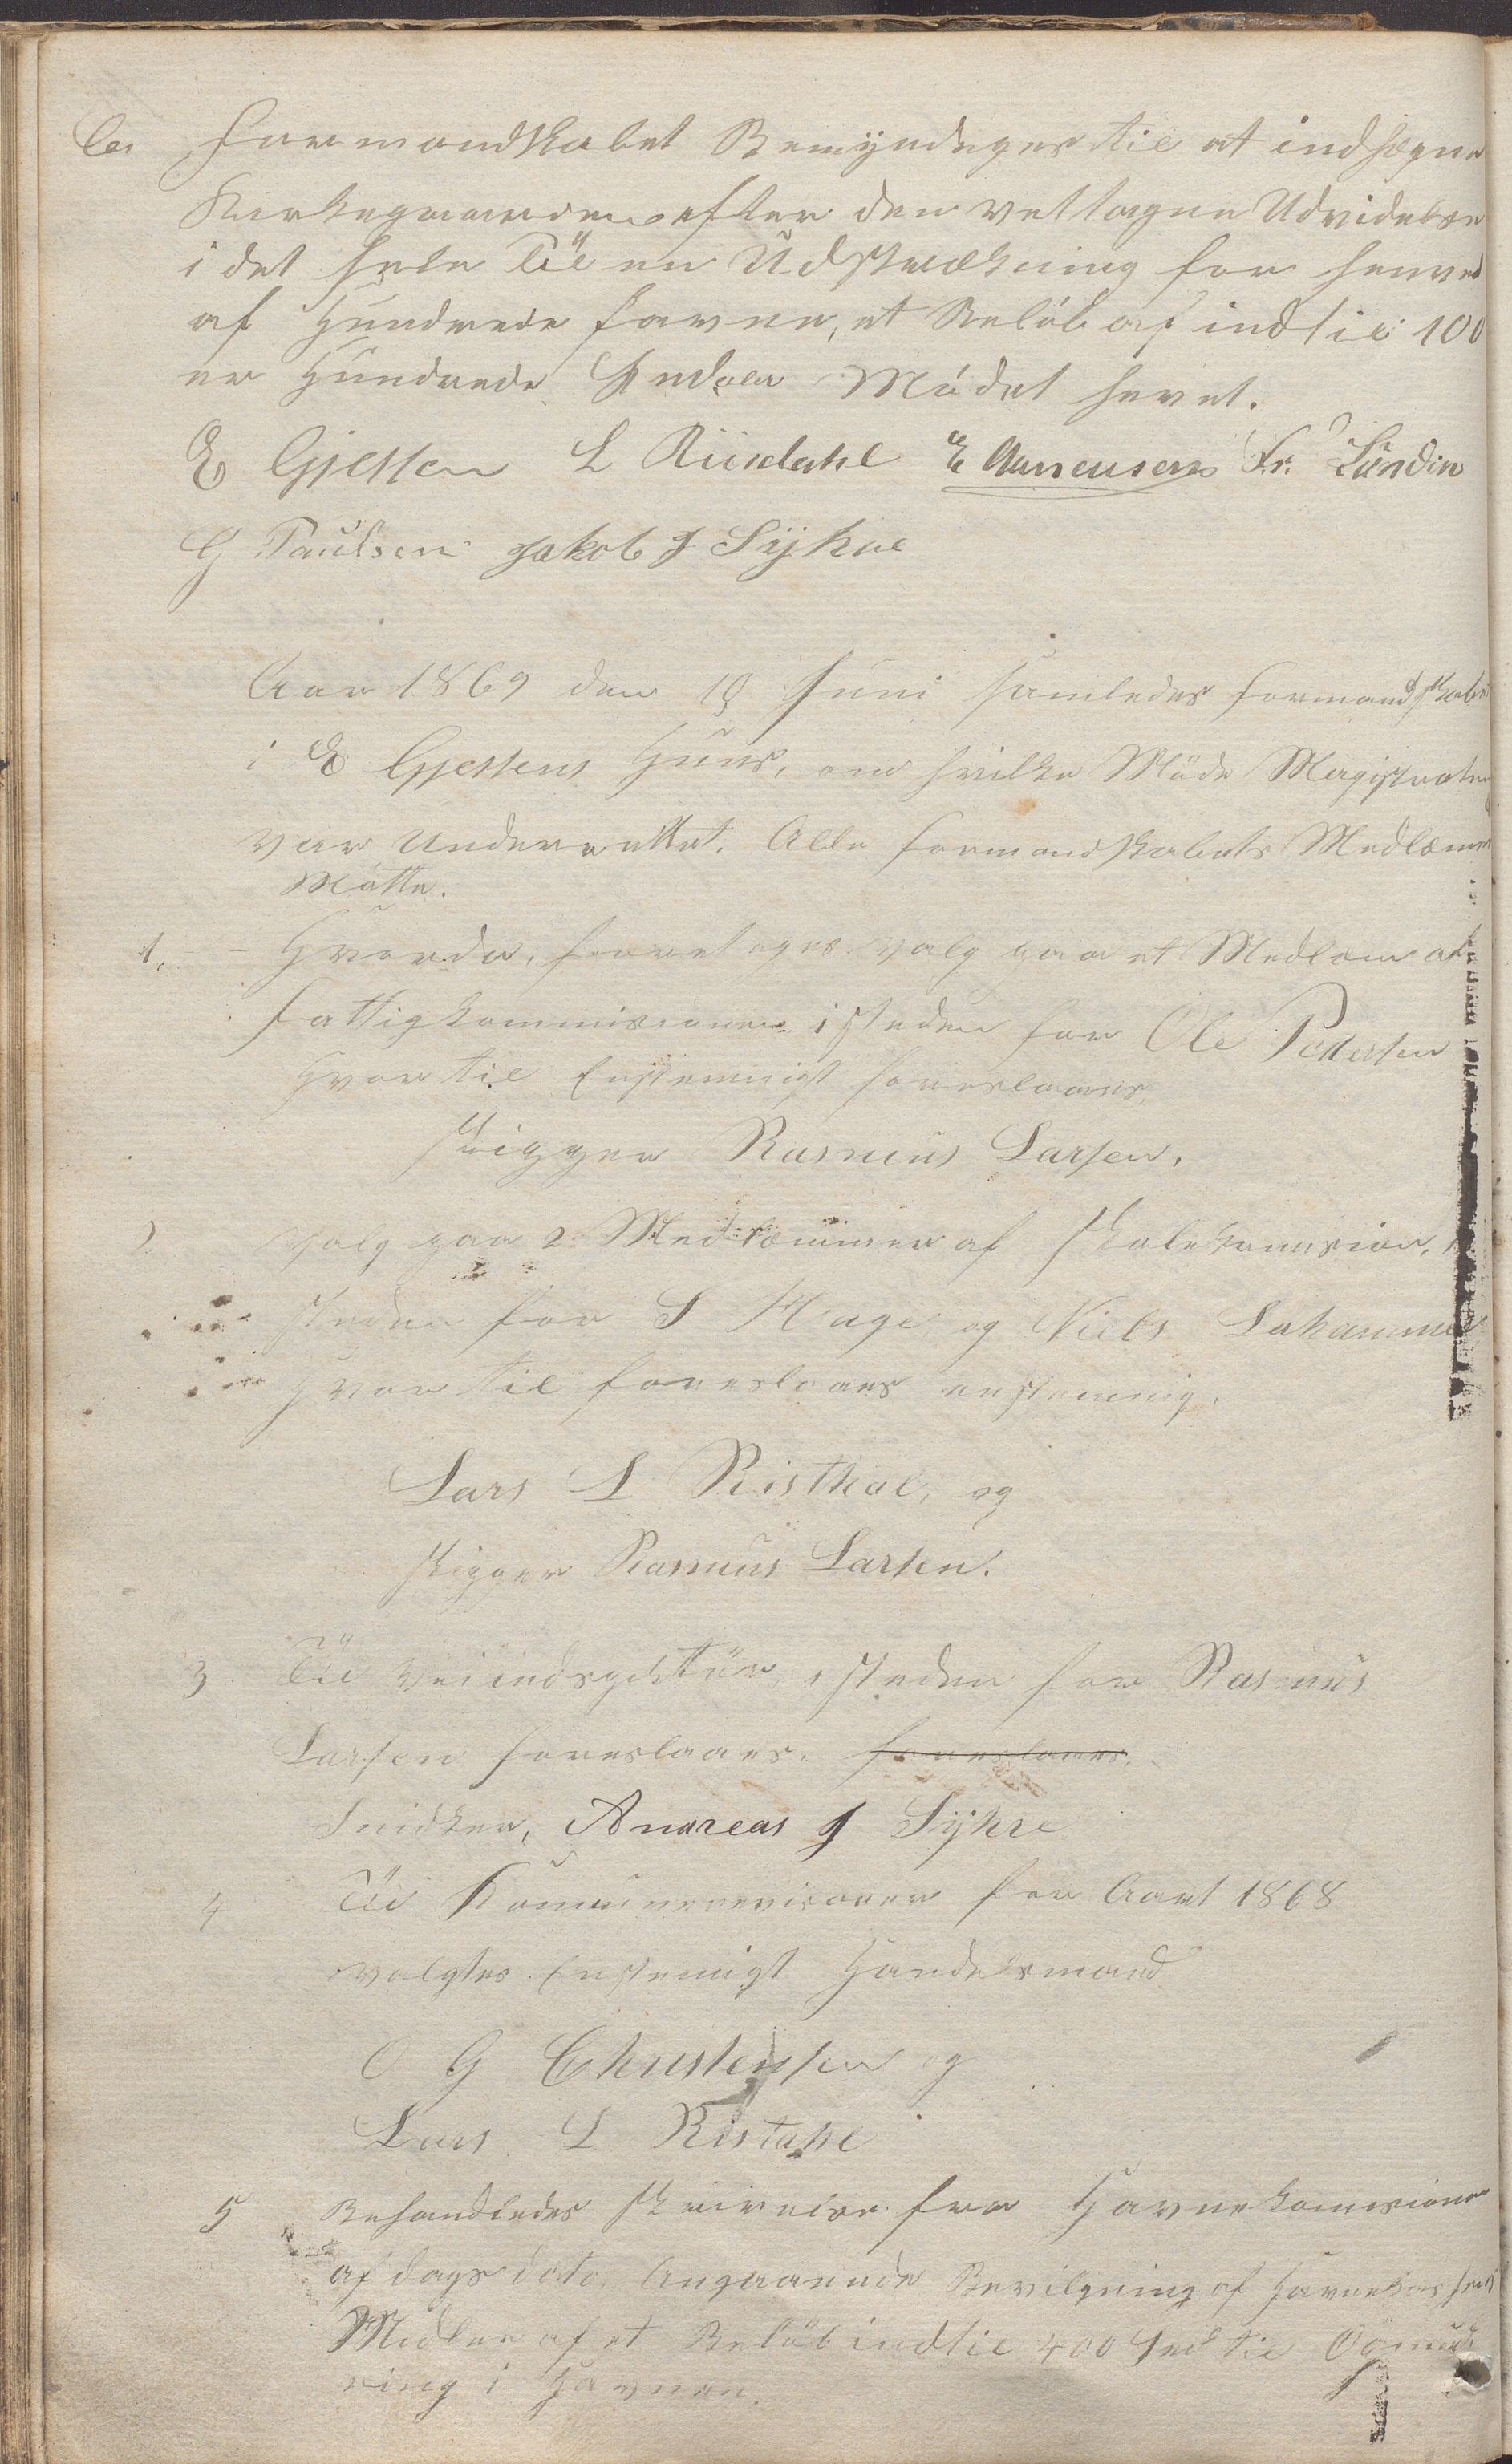 Formandskabet Bemyndiges til at indhegne
Kirkegaarden efter den vettagne Udvidelse
i det hele Til en Udstrækning for henved
af Hundrede Favne, et Beløb af indtil 100
er Hundrede Spdaler Mødet hevet.
E Gjessen L Riisdahl E Fr. Lundin
G Paulsen Jakob J Lykre
Aar 1869 den 18 Juni samledes Formandskabet
i E Gjessens Huus, om hvilke Møde Magistraten
var Underrettet. Alle Formandskabets Medlemmer
Møtte.
1. Hvorda, foretages valg paa et Medlem af
Fattigkommisionen isteden for Ole Pedersen
Hvor til Enstemigt foreslaaes
Skipper Rasmus Larsen.
2 Valg paa 2 Medlemmer af Skolekomision, i
steden for S Hage og Niels
Hvor til foreslaaes enstemmig.
Lars L Risthal, og
Skipper Rasmus Larsen.
3 Til Veiindspektør isteden for Rasmus
Larsen foreslaaes. foreslaaes.
Snidker, Andreas J Lykre
4 Til Kommunerevisorer for Aaret 1868
valgtes Enstemigt Handelsmand
O G Christensen og
Lars L Ristahl
5 Behandledes Skrivelse fra Havnekomisionen
af dags dato, Angaaende Bevilgning af Havnekassens
Midler af et Beløb indtil 400 Spd til Opmud
ring i Havnen.